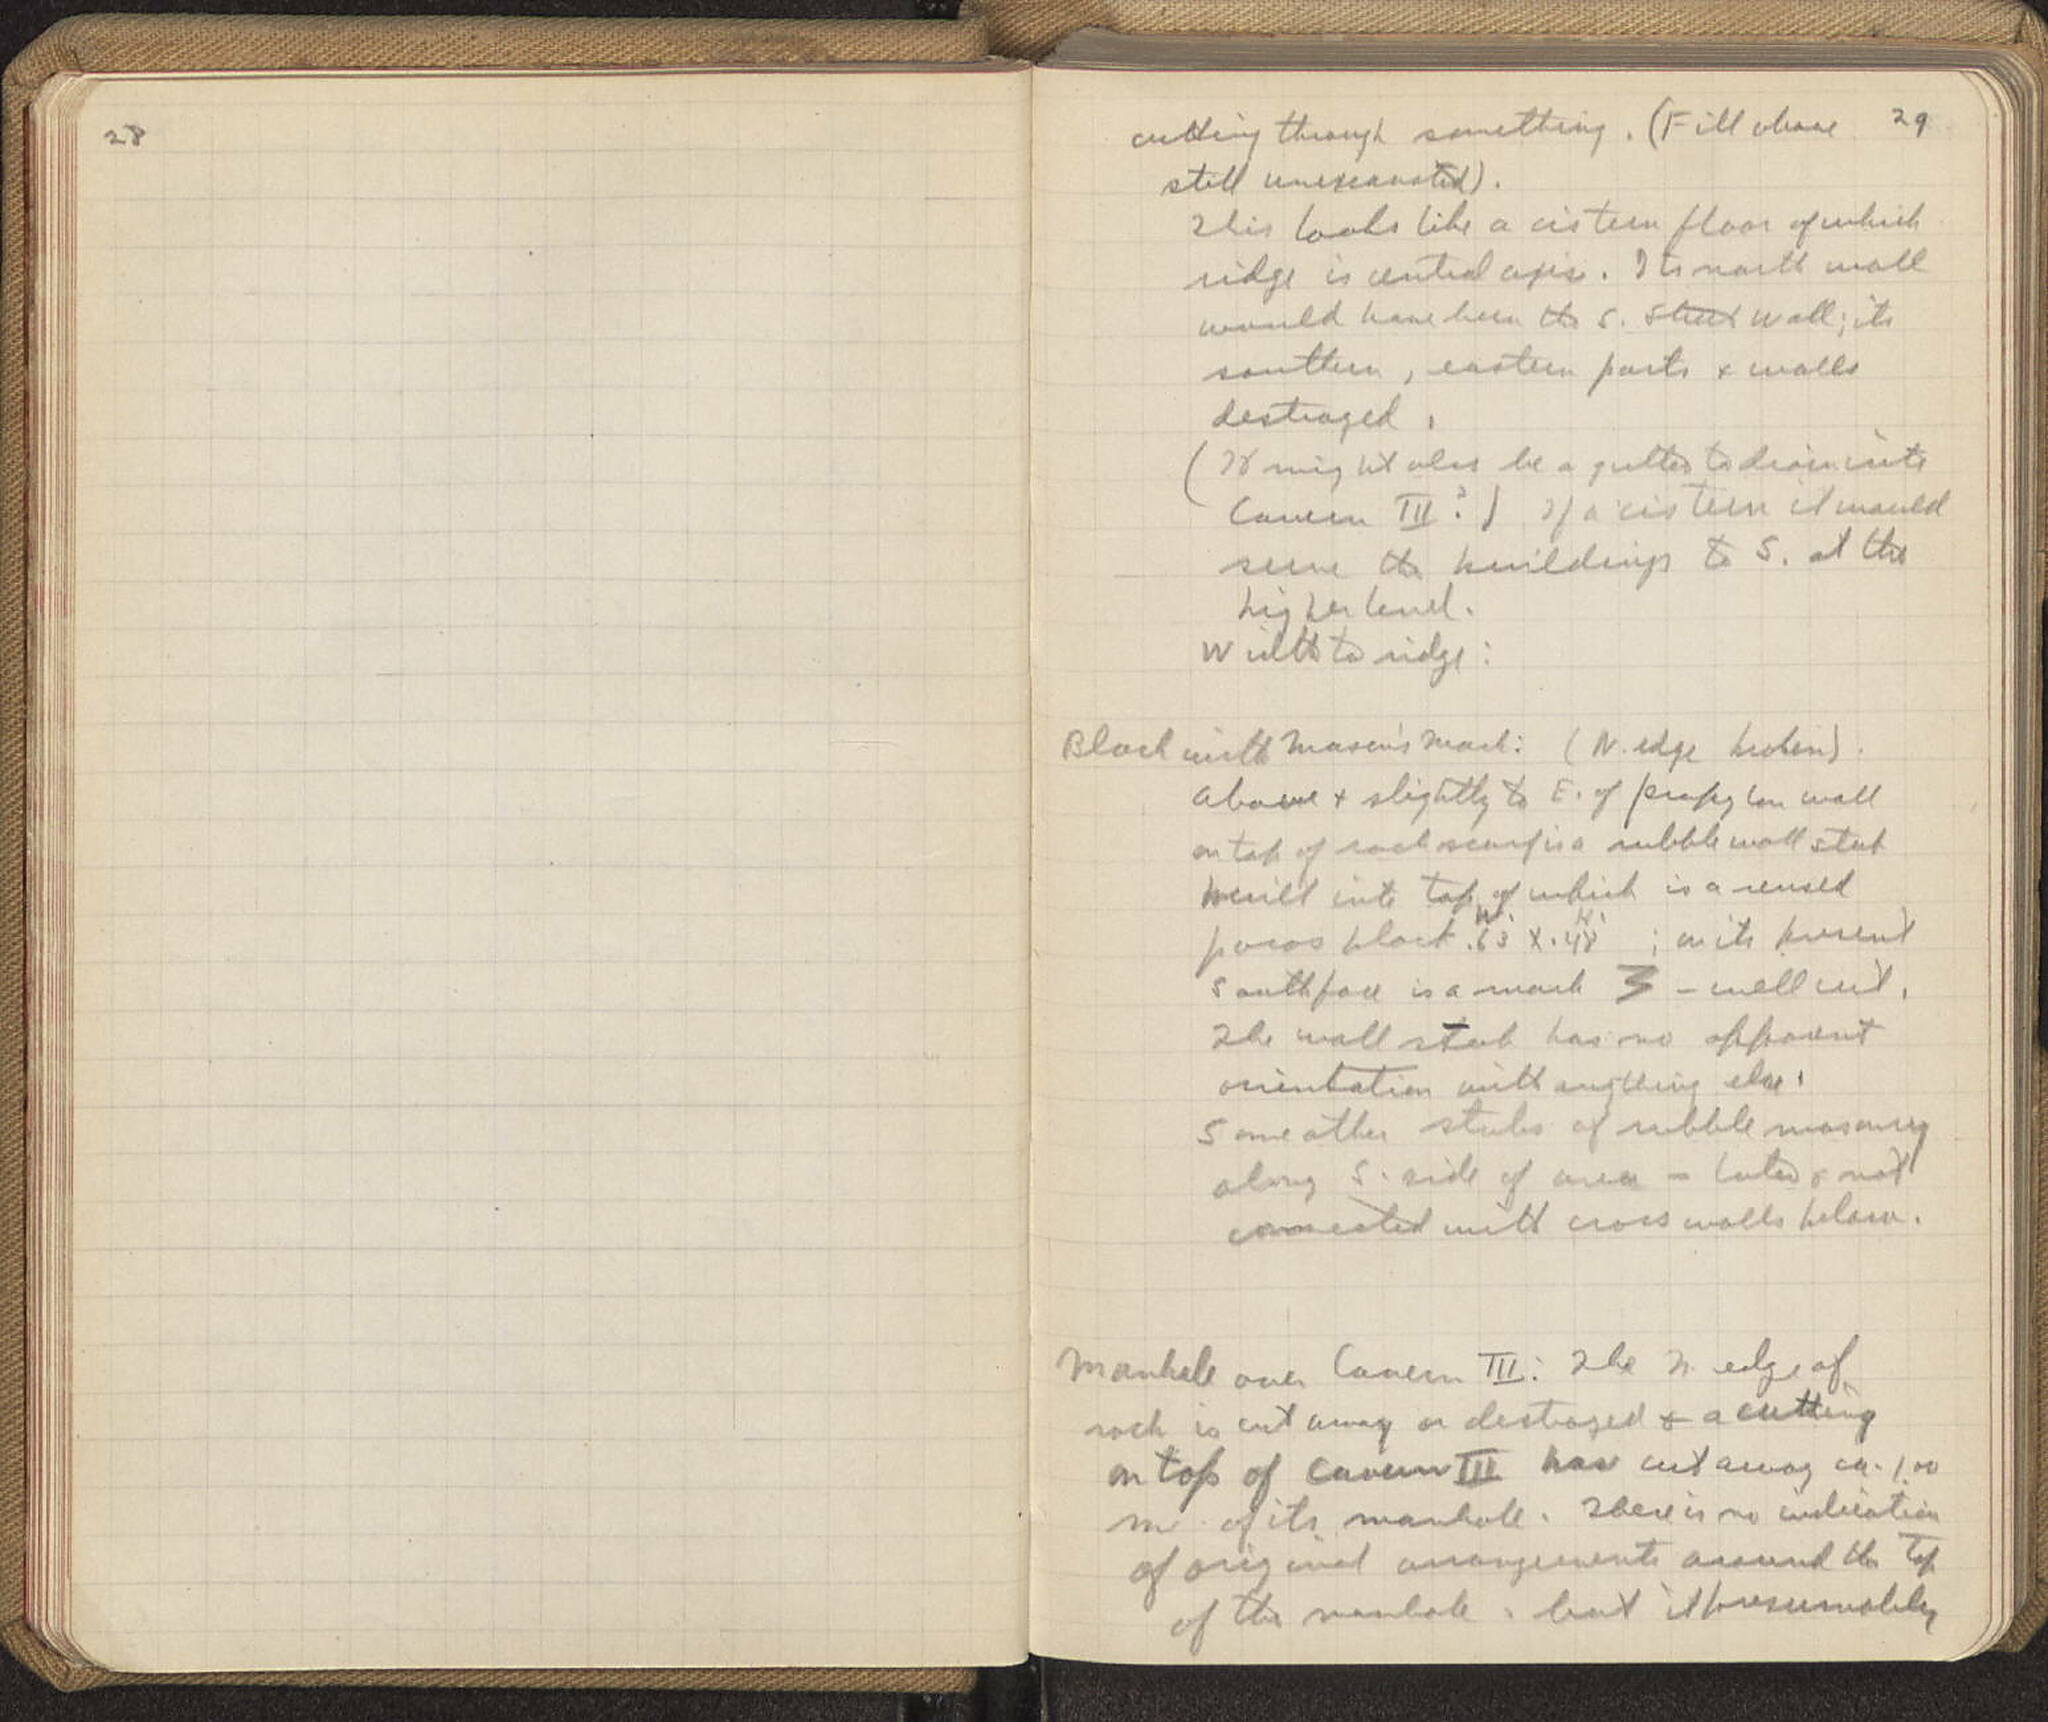 28
29
cutting through something. (Fill above
still unexcavated).
This looks like a cistern floor of which
ridge is central axis. Its north wall
would have been the S. Street wall; its
southern, eastern parts & walls
destroyed.
(It might also be a gutter to drain into
Cavern III?) If a cistern it would
serve the buildings to S. at the
higher level.
Width to ridge:
Block with Mason's mark: (N. edge broken).
Above & slightly to E. of propylon wall
on top of rock scarp is a rubble wall stub
built into top of which is a reused
W. H.
poros block .63 X .48 ; on its present
south face is a mark Σ - well cut.
The wall stub has no apparent
orientation with anything else.
Some other stubs of rubble masonry
along S. side of area - later & not
connected with cross walls below.
Manhole over Cavern III: The N. edge of
rock is cut away or destroyed & a cutting
on top of Cavern III has cut away ca. 1.00
m. of its manhole. There is no indication
of original arrangements around the top
of the manhole. but it presumably